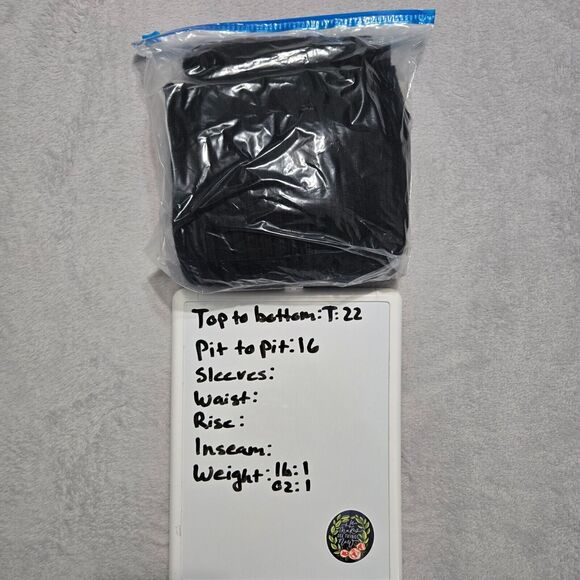 Top to bottom: T: 22
Pit to pit: 16
Sleeves:
Waist:
Rise:
Inseam:
Weight: lb: 1
oz: 1